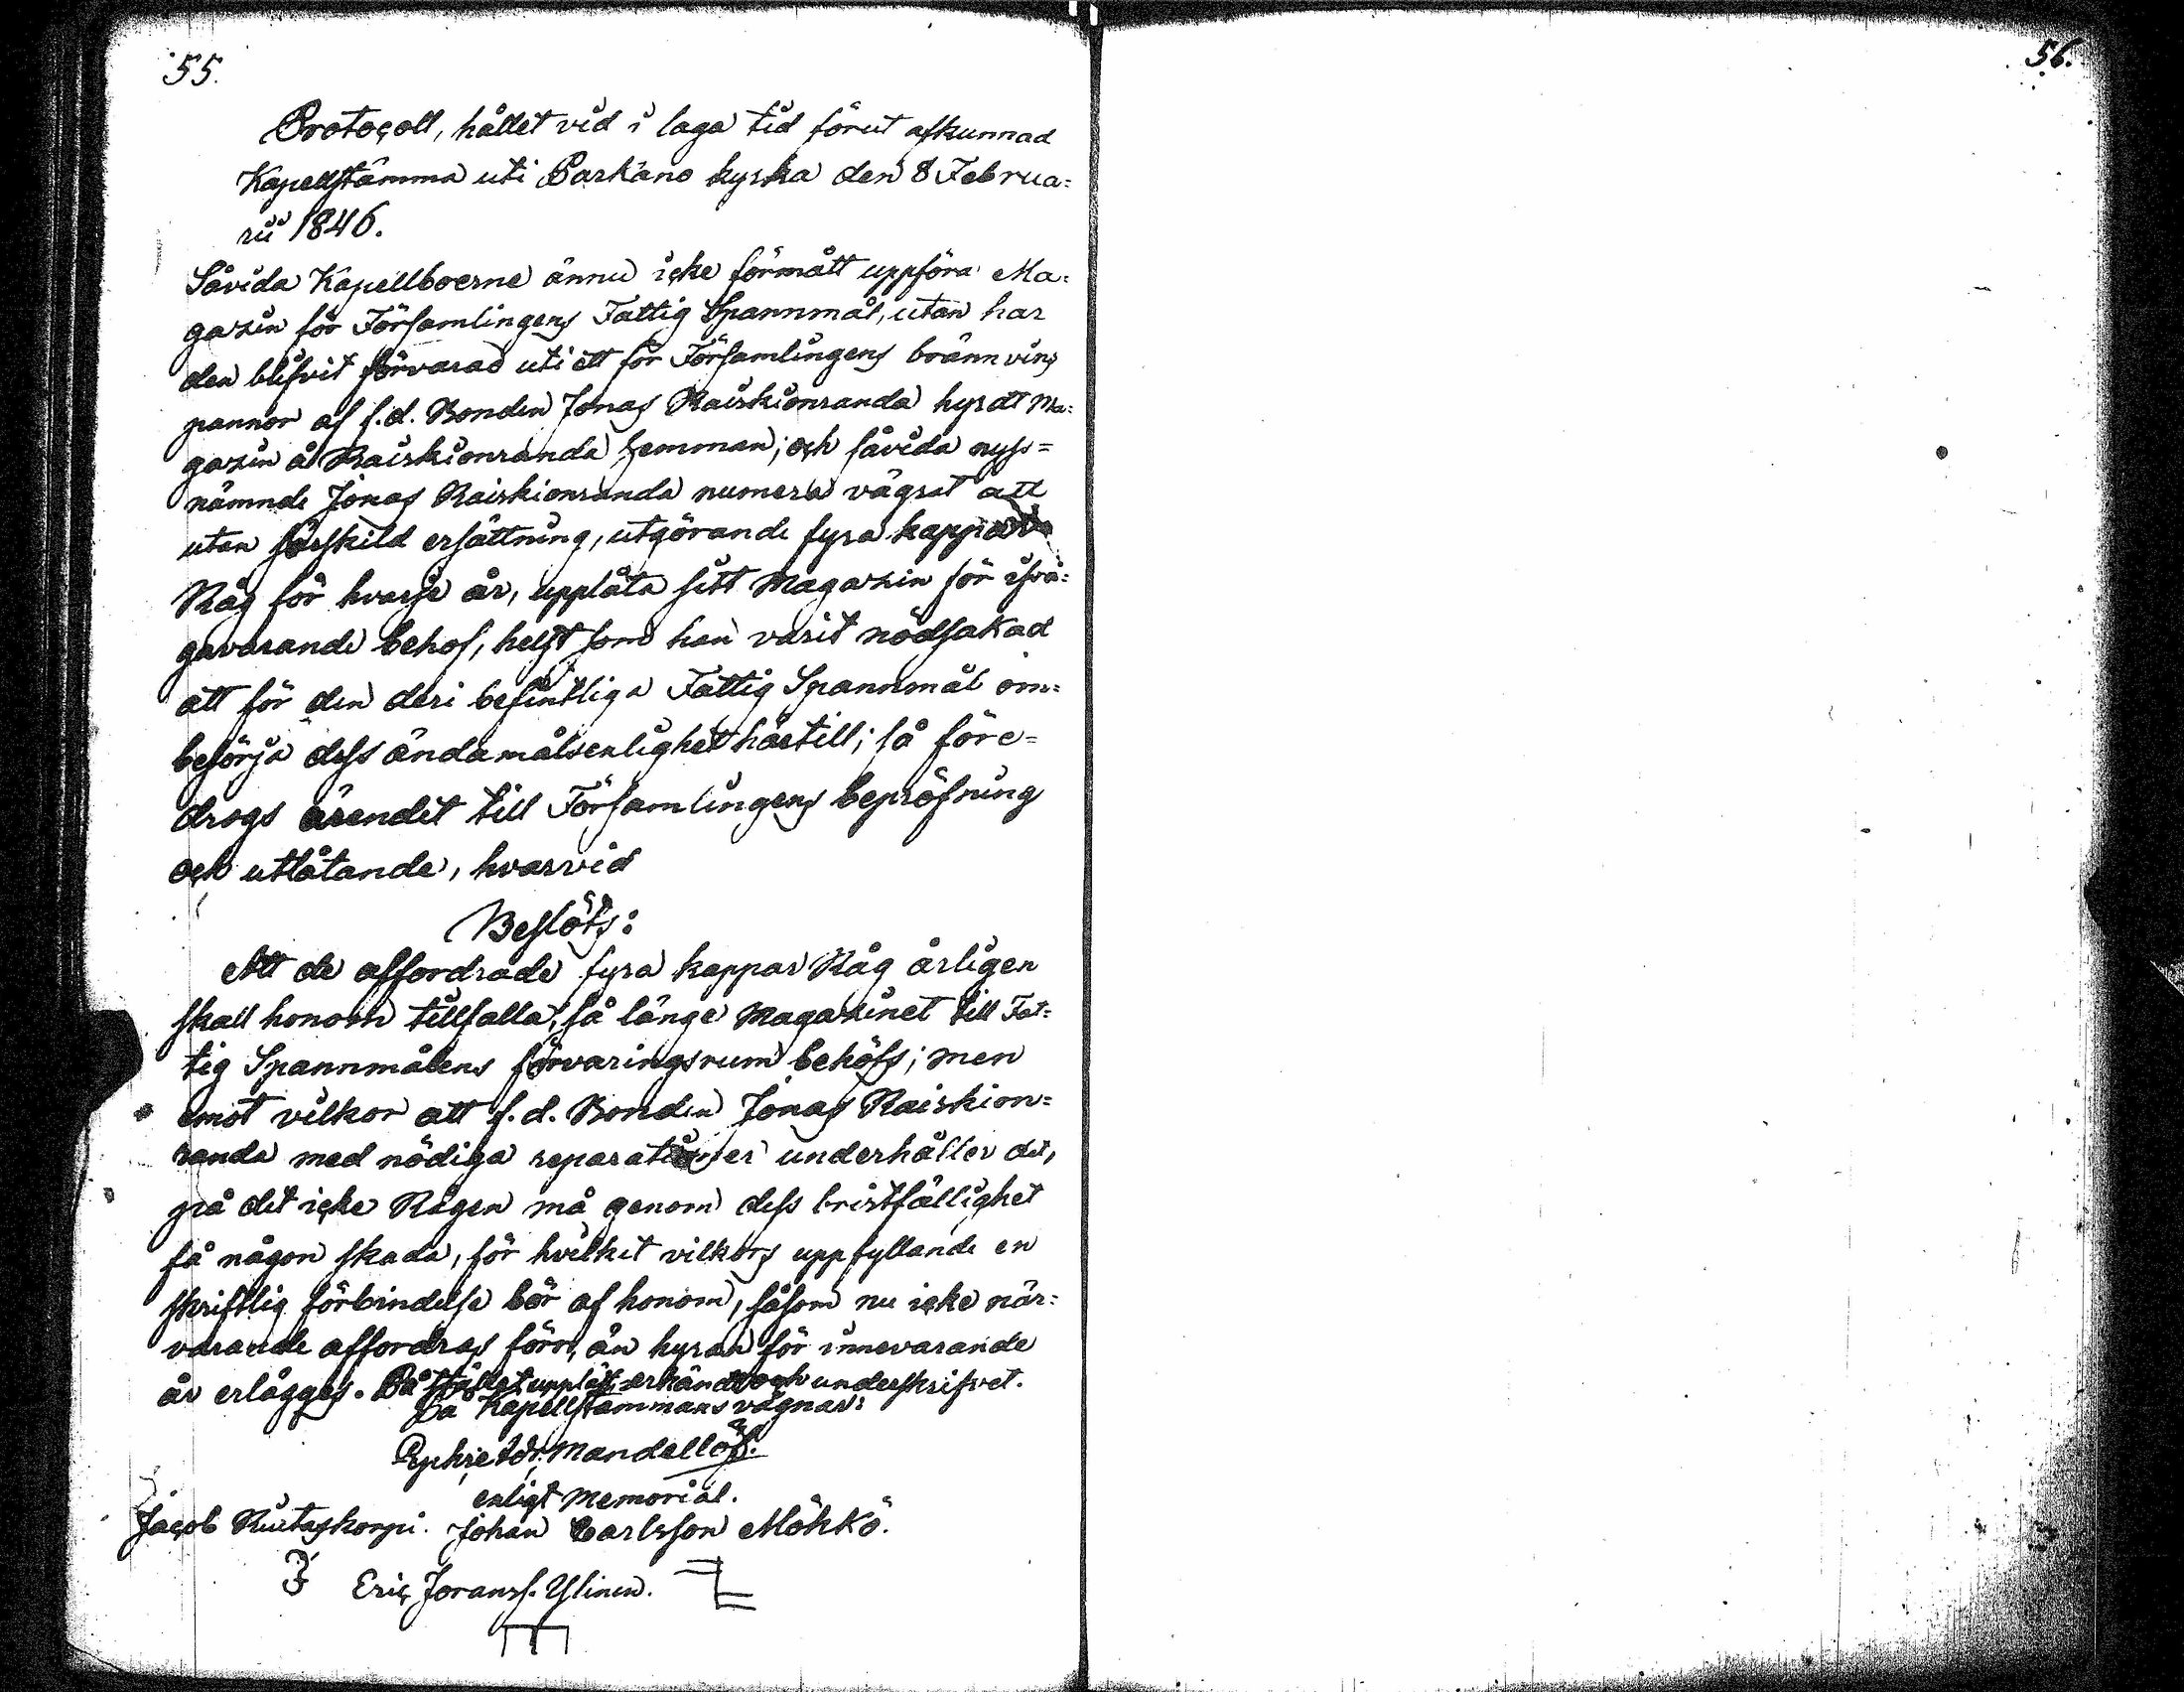 55.
56.
Protocoll, hållet vid i laga tid förut afkunnad
Kapellstämma uti Parkano kyrka den 8 Februa=
rii 1846.
Såvida Kapellboerne ännu icke förmått uppföra Ma=
gazin för Församlingens Fattig Spannmål, utan har
den blifvit förvarad uti ett för Församlingens brännvins
pannor af f.d. Bonden Jonas Raiskionranda hyrdt Ma=
gazin å Raiskionranda hemman; och såvida nyss=
nämnde Jonas Raiskionranda numera vägrat att
utan särskild ersättning, utgörande fyra kappar
Råg för hvarje år, upplåta sitt Magazin för ifrå=
gavarande behof, helst som han varit nödsakad
att för den deri befintliga Fattig Spannmål om=
besörja dess ändamålsenlighet härtill; så före=
drogs ärendet till Församlingens bepröfning
och utlåtande, hvarvid
Beslöts:
Att de affordrade fyra kappar Råg årligen
skall honom tillfalla, så länge Magazinet till Fat=
tig Spannmålens förvaringsrum behöfs; men
emot vilkor att f.d. Bonden Jonas Raiskion=
randa med nödiga reparationer underhåller det,
på det icke Rågen må genom dess bristfällighet
få någon skada, för hvilket vilkors uppfyllande en
skriftlig förbindelse bör af honom, såsom nu icke när=
varande affordras förr, än hyran för innevarande
år erlägges. På stället uppläst, erkändt och underskrifvet.
På Kapellstämmans vägnar:
Mandellöf.
enligt Memorial.
Jacob Riutaskorpi. Johan Carlsson Möhkö.
Eric Joranss. Ylinen.